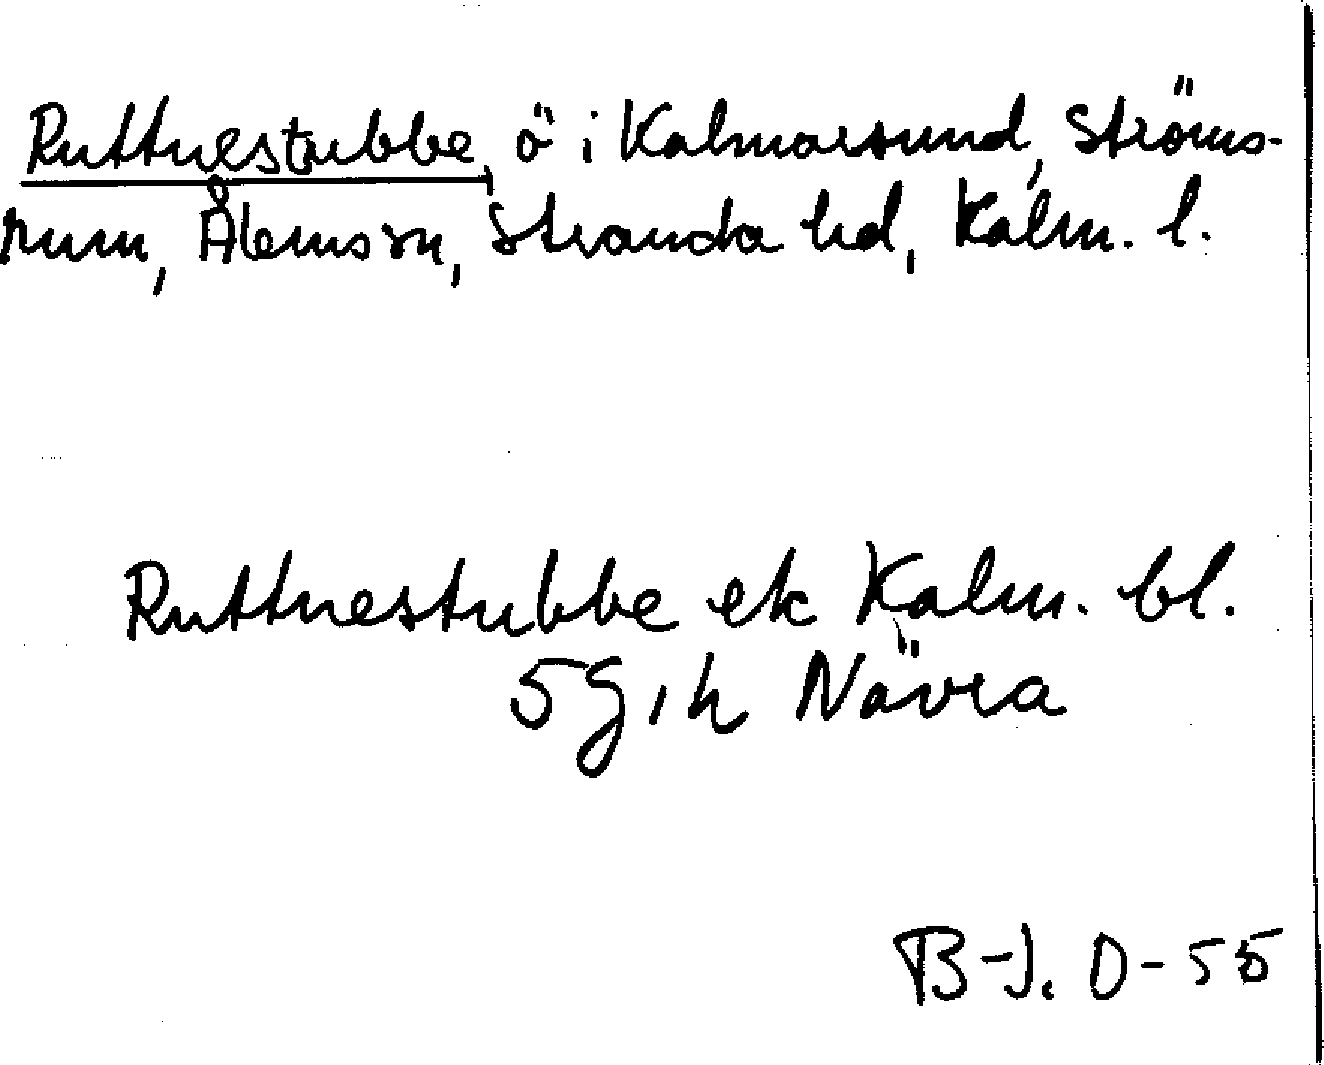 Ruttnestubbe, ö i Kalmarsund, Ströms-
rum, Ålems sn, Stranda hd, Kalm. l.
Ruttnestubbe ek Kalm. bl.
5g, h Nävra
B-J. O-55